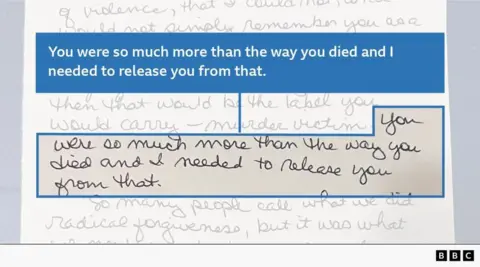 violence, that I could
would not simply remember you as a
You were so much more than the way you died and I
needed to release you from that.
then that would be the label you
would carry – murder victim You
were so much more than the way you
died and I needed to release you
from that.
So many people call what we did
radical forgiveness, but it was what
BBC